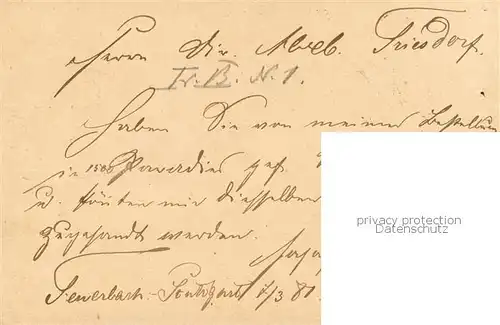 Herrn Dir. Abeb. Triesdorf.
Tr. B. N. 1.
Haben Sie von meiner Bestellung
in 1500 Paradies gef.
u. könnten mir dieselben
zugesandt werden.
privacy protection
Datenschutz
Feuerbach-Stuttgart 1/3 81